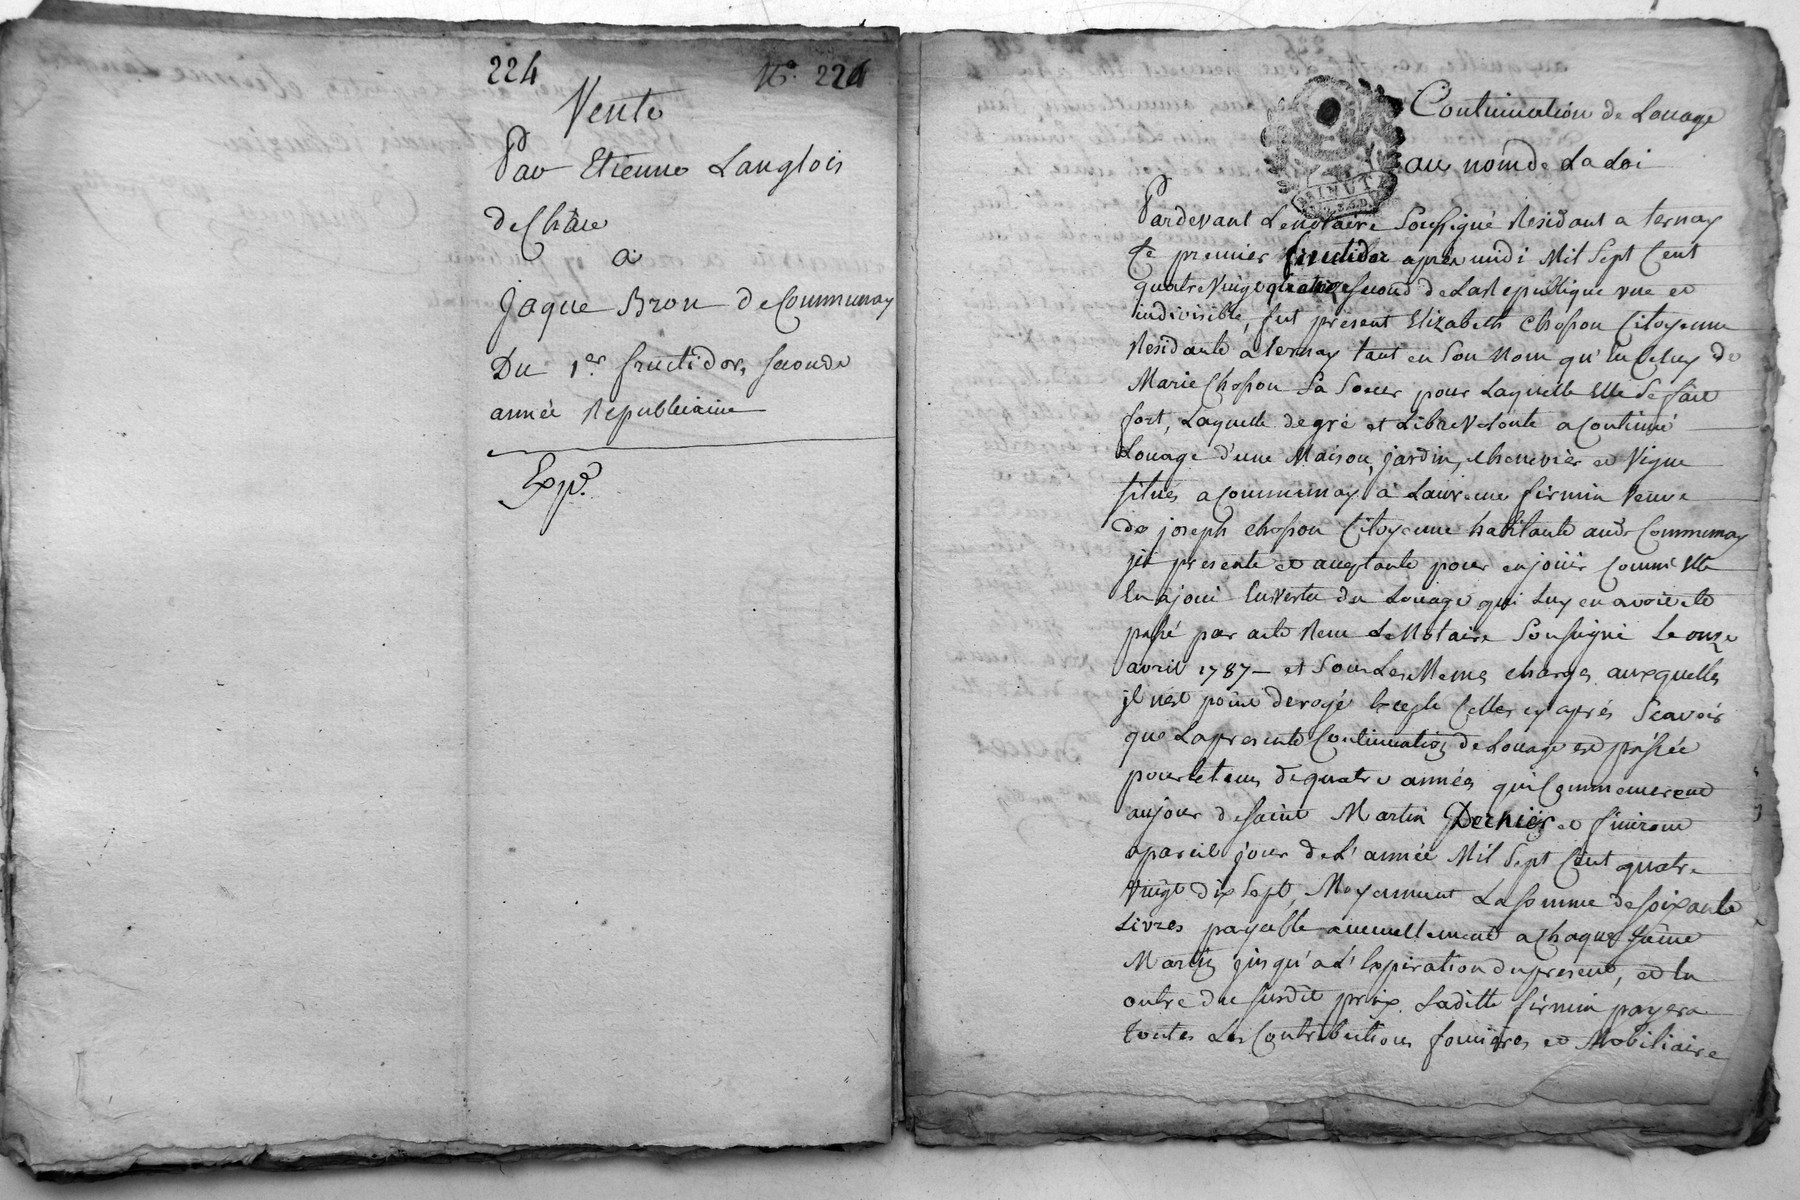 224
N.° 224
Vente
Par Etienne Langlois
de Chãu
a
Jaque Bron de Communay
Du 1.er fructidor, seconde
année Republicaine
Exp.é
Continuation de Louage
au nom de La Loi
MINUTE
Pardevant Le notaire Soussigné Residant a ternay
Ce premier fructidor apres midi Mil Sept Cent
quatre Vingt quatorze second de La Republique une et
indivisible, fut present Elizabeth Chosson Citoyenne
Residante a ternay tant en Son Nom qu'en Celuy de
Marie Chosson Sa Soeur pour Laquelle Elle Se fait
fort, Laquelle de gré et Libre Volonté a Continué
Louage d'une Maison, jardin, chenevier et Vigne
situés a Communay a Laurence firmin Veuve
de joseph chosson Citoyenne habitante aud. Communay
ici presente et acceptante pour en jouir Comme Elle
En a joui En Vertu du Louage qui Luy en avoit eté
passé par acte Reçu Le Notaire Soussigné Le onze
avril 1787 - et Sous Les Memes charges auxquelles
il n'est point derogé Excepté Celles cy aprés Scavoir
que La presente Continuation de Louage est passée
pour le tems de quatre années qui Commenceront
au jour de saint Martin Dernier et finiront
a pareil jour de L'année Mil Sept Cent quatre
Vingt dix Sept, Moyennant La Somme de soixante
Livres payable annuellement a Chaque Saint
Martin jusqu'a L'Expiration du present, et En
outre du susdit prix Laditte firmin payera
toutes Les Contributions foncieres et Mobiliaire